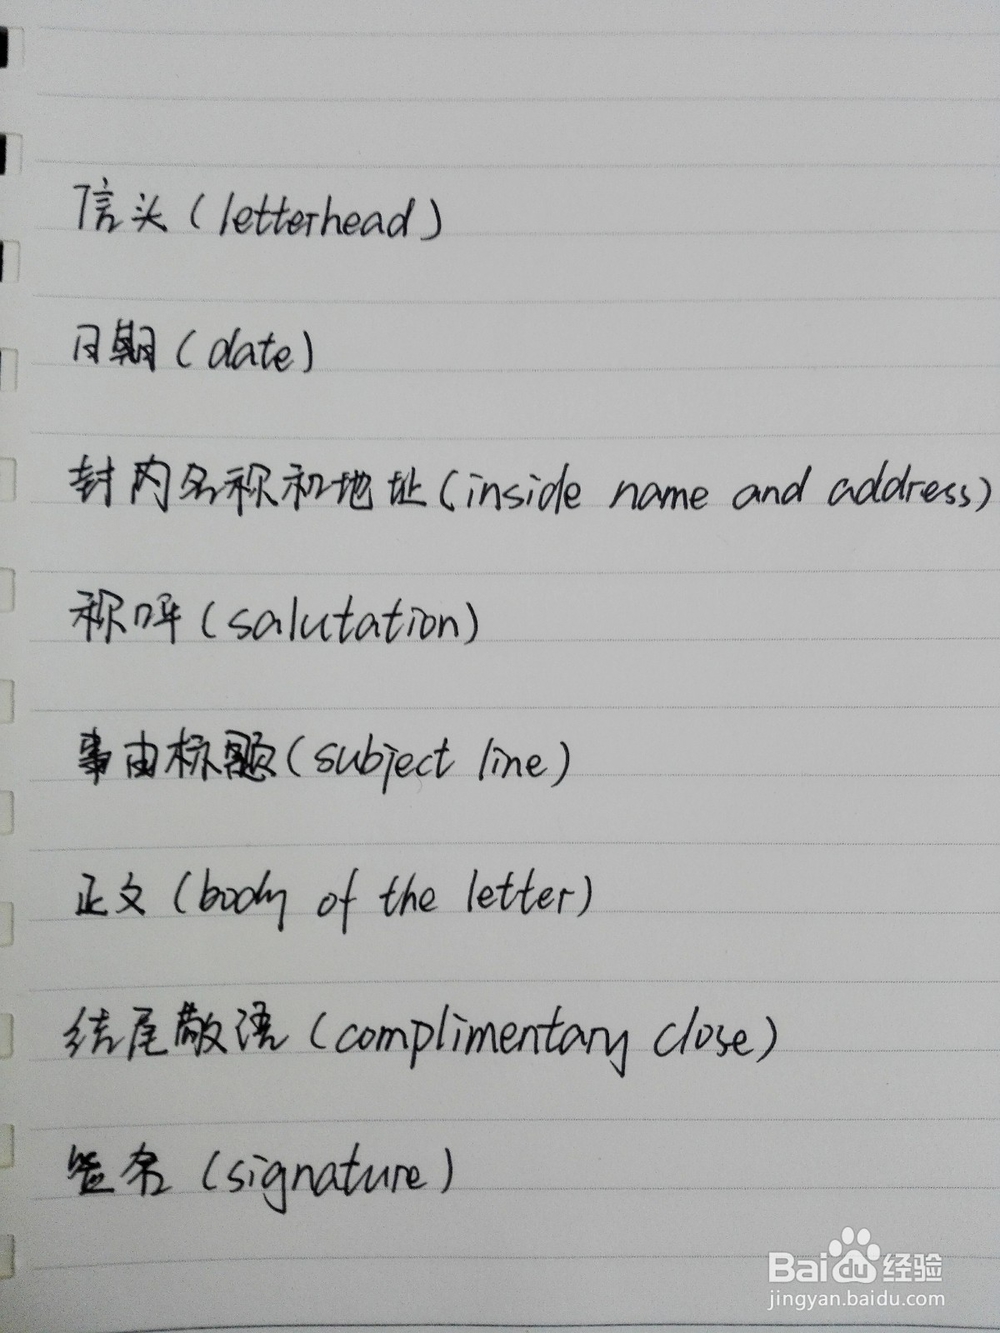 信头(letterhead)
日期(date)
封内名称和地址(inside name and address)
称呼(salutation)
事由标题(subject line)
正文(body of the letter)
结尾敬语(complimentary close)
签名(signature)
Baidu经验
jingyan.baidu.com